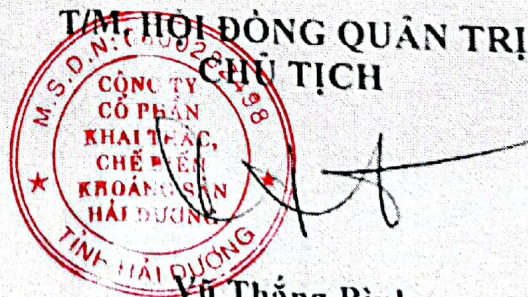 T/M. HỘI ĐỒNG QUẢN TRỊ
CHỦ TỊCH
M.S.D.N:
CÔNG TY
CỔ PHẦN
KHAI THÁC,
CHẾ BIẾN
KHOÁNG SẢN
HẢI DƯƠNG
TỈNH HẢI DƯƠNG
Vũ Thắng